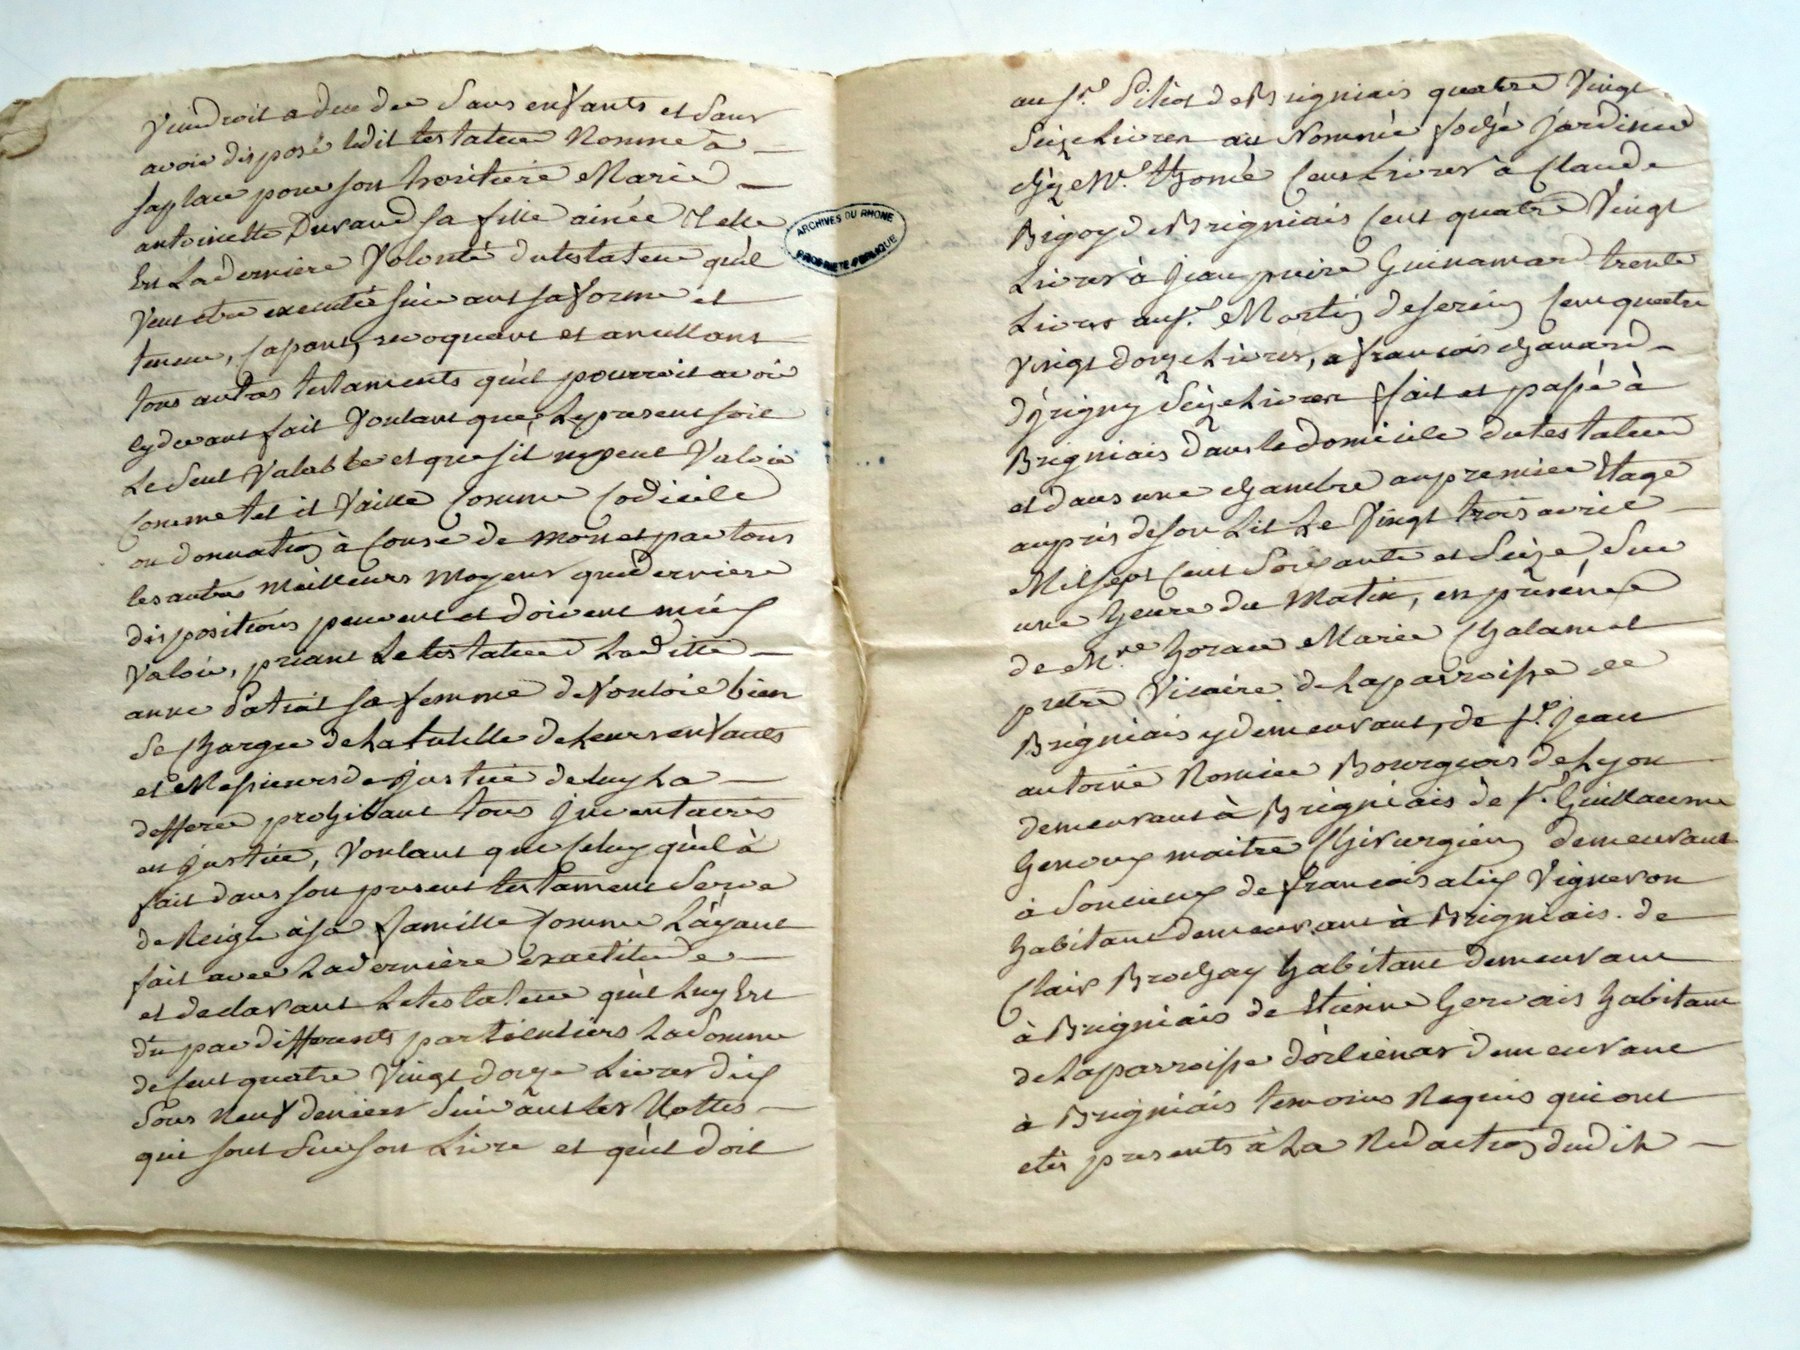 Viendroit a deceder sans enfants et sans
avoir disposé ledit testateur Nomme a
sa place pour son heritiere Marie
antoinette Durand sa fille ainée Telle
Est La derniere Volonté du testateur qu'il
Veut etre executée suivant sa forme et
teneur, Cassant, revoquant et anullant
tous autres testaments qu'il pourroit avoir
cydevant fait Voulant que Le present soit
Le seul Valable et que s'il ne peut Valoir
Comme tel il Vaille Comme Codicile
ou donnation à Cause de mort et par tous
les autres meilleurs moyens que derniere
dispositions peuvent et doivent mieux
Valoir, priant Le testateur Laditte
anne Patrat sa femme de Vouloir bien
se Charger de La tutelle de Leurs enfants
et Messieurs de Justice de luy La
defferer prohibant tous Inventaires
en justice, Voulant que Celuy qu'il à
fait dans son present testament Serve
de Reigle à sa famille Comme L'ayant
fait avec La dernière exactitude
et declarant Le testateur qu'il Luy Est
dû par differents particuliers La somme
de Cent quatre Vingt douze Livres dix
Sous neuf deniers Suivant les Nottes
qui sont Sur son Livre et qu'il doit
ARCHIVES DU RHONE
PROPRIETE PUBLIQUE
au Sr. de Brigniais quatre Vingt
Seize Livres au Nommé Jardinier
chez Mr. thomé Cent Livres à Claude
de Brigniais Cent quatre Vingt
Livres à Jean pierre Guinamard trente
Livres au Sr. Martin de serin Cent quatre
Vingt douze Livres, a francois chanard
d'irigny Seize Livres fait et passé à
Brigniais dans le domicile du testateur
et dans une chambre au premier Etage
auprès de son Lit Le Vingt trois avril
Mil sept Cent Soixante et Seize, Sur
une heure du matin, en présence
de Mre. horace Marie Chalamel
pretre Vicaire de La parroisse de
Brigniais y demeurant, de Sr. Jean
antoine Romier Bourgeois de Lyon
demeurant à Brigniais de Sr. Guillaume
Genoux maitre Chirurgien demeurant
à Soucieux de francois alix Vigneron
habitant demeurant à Brigniais. de
Clair Brochay habitant demeurant
à Brigniais de Etienne Gervais habitant
de La parroisse d'orlienas demeurant
à Brigniais temoins Requis qui ont
etés presents à La Rédaction dudit